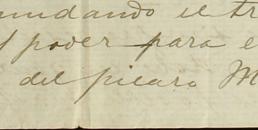 undando el tr
poder para e
del picaro M